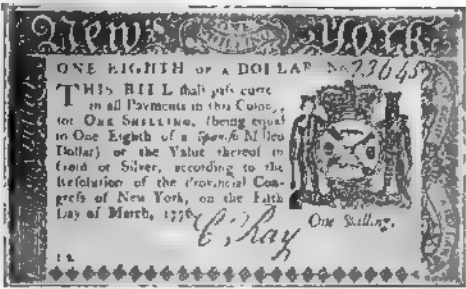 New York
ONE EIGHTH OF A DOLLAR No 23645
THIS BILL shall pass current
in all Payments in this Colony,
for ONE SHILLING, (being equal
to One Eighth of a Spanish Milled
Dollar) or the Value thereof in
Gold or Silver, according to the
Resolution of the Provincial Con-
gress of New York, on the Fifth
Day of March, 1776.
C. Ray
One Shilling.